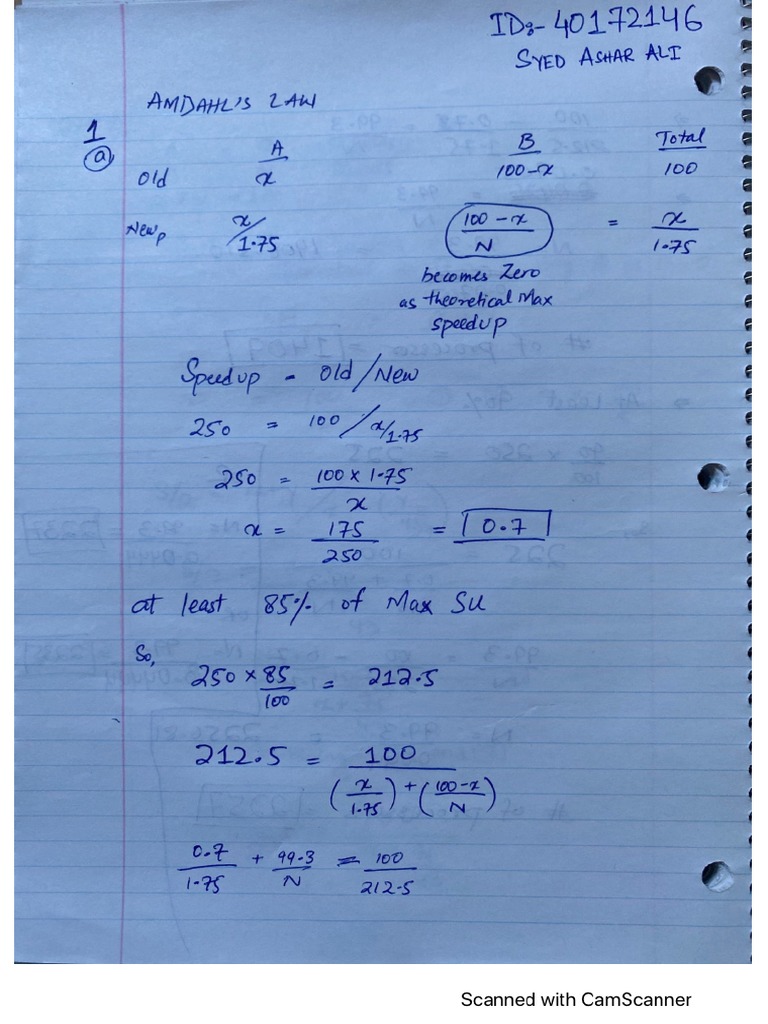 ID:- 40172146
SYED ASHAR ALI
AMDAHL'S LAW
1
(a)
A B Total
Old x 100-x 100
Newp x/1.75 (100-x)/N = x/1.75
becomes Zero
as theoretical Max
speedup
Speedup = Old/New
250 = 100/x/1.75
250 = (100 x 1.75)/x
x = 175/250 = 0.7
at least 85% of Max SU
So,
250 x 85/100 = 212.5
212.5 = 100/((x/1.75)+(100-x/N))
0.7/1.75 + 99.3/N = 100/212.5
Scanned with CamScanner